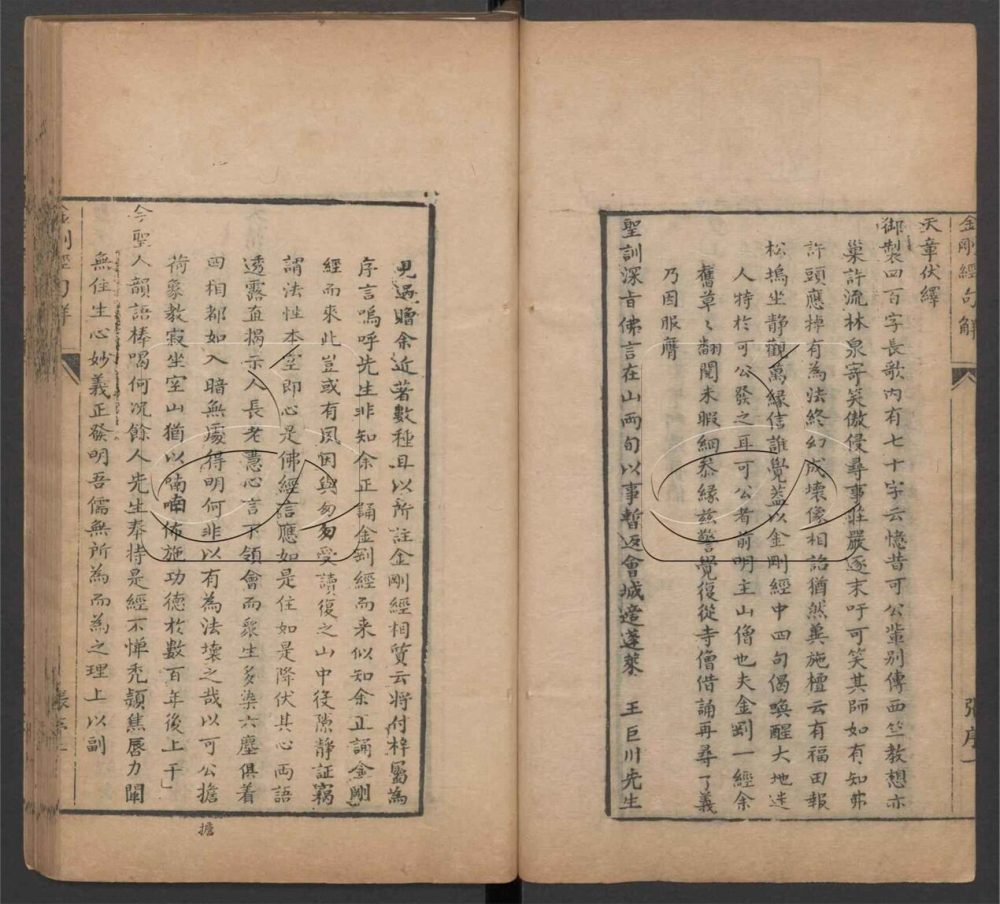 金剛經句解
張序一
天章伏繹
御製四百字長歌內有七十字云憶昔可公輩別傳西竺教想亦
巢許流林泉寄笑傲侵尋事莊嚴逐末吁可笑其師如有知茆
許頭應掉有為法終幻成壞像相詒猶然冀施檀云有福田報
松塢坐静觀萬緣信誰覺葢以金剛經中四句偈喚醒大地迷
人特於可公發之耳可公者前明主山僧也夫金剛一經余
舊草草翻閱未暇細叅緣兹警覺復從寺僧借誦再尋了義
乃因服膺
聖訓深旨佛言在山兩句以事暫返會城適蓬萊 王巨川先生
見過贈余近著數種且以所註金剛經相質云將付梓屬為
序言嗚呼先生非知余正誦金剛經而来似知余正誦金剛
經而來此豈或有夙因與匆匆受讀復之山中後陳静証竊
謂法性本空即心是佛經言應如是住如是降伏其心兩語
透露直揭示人長老慧心言下領會而衆生多染六塵俱着
四相都如入暗無處得明何非以有為法壞之哉以可公擔
荷象教寂坐空山猶以喃喃佈施功德於數百年後上干
今聖人韻語棒喝何况餘人先生奉持是經不憚禿頴焦唇力闡
無住生心妙義正發明吾儒無所為而為之理上以副
金剛經句解
張序二
擔